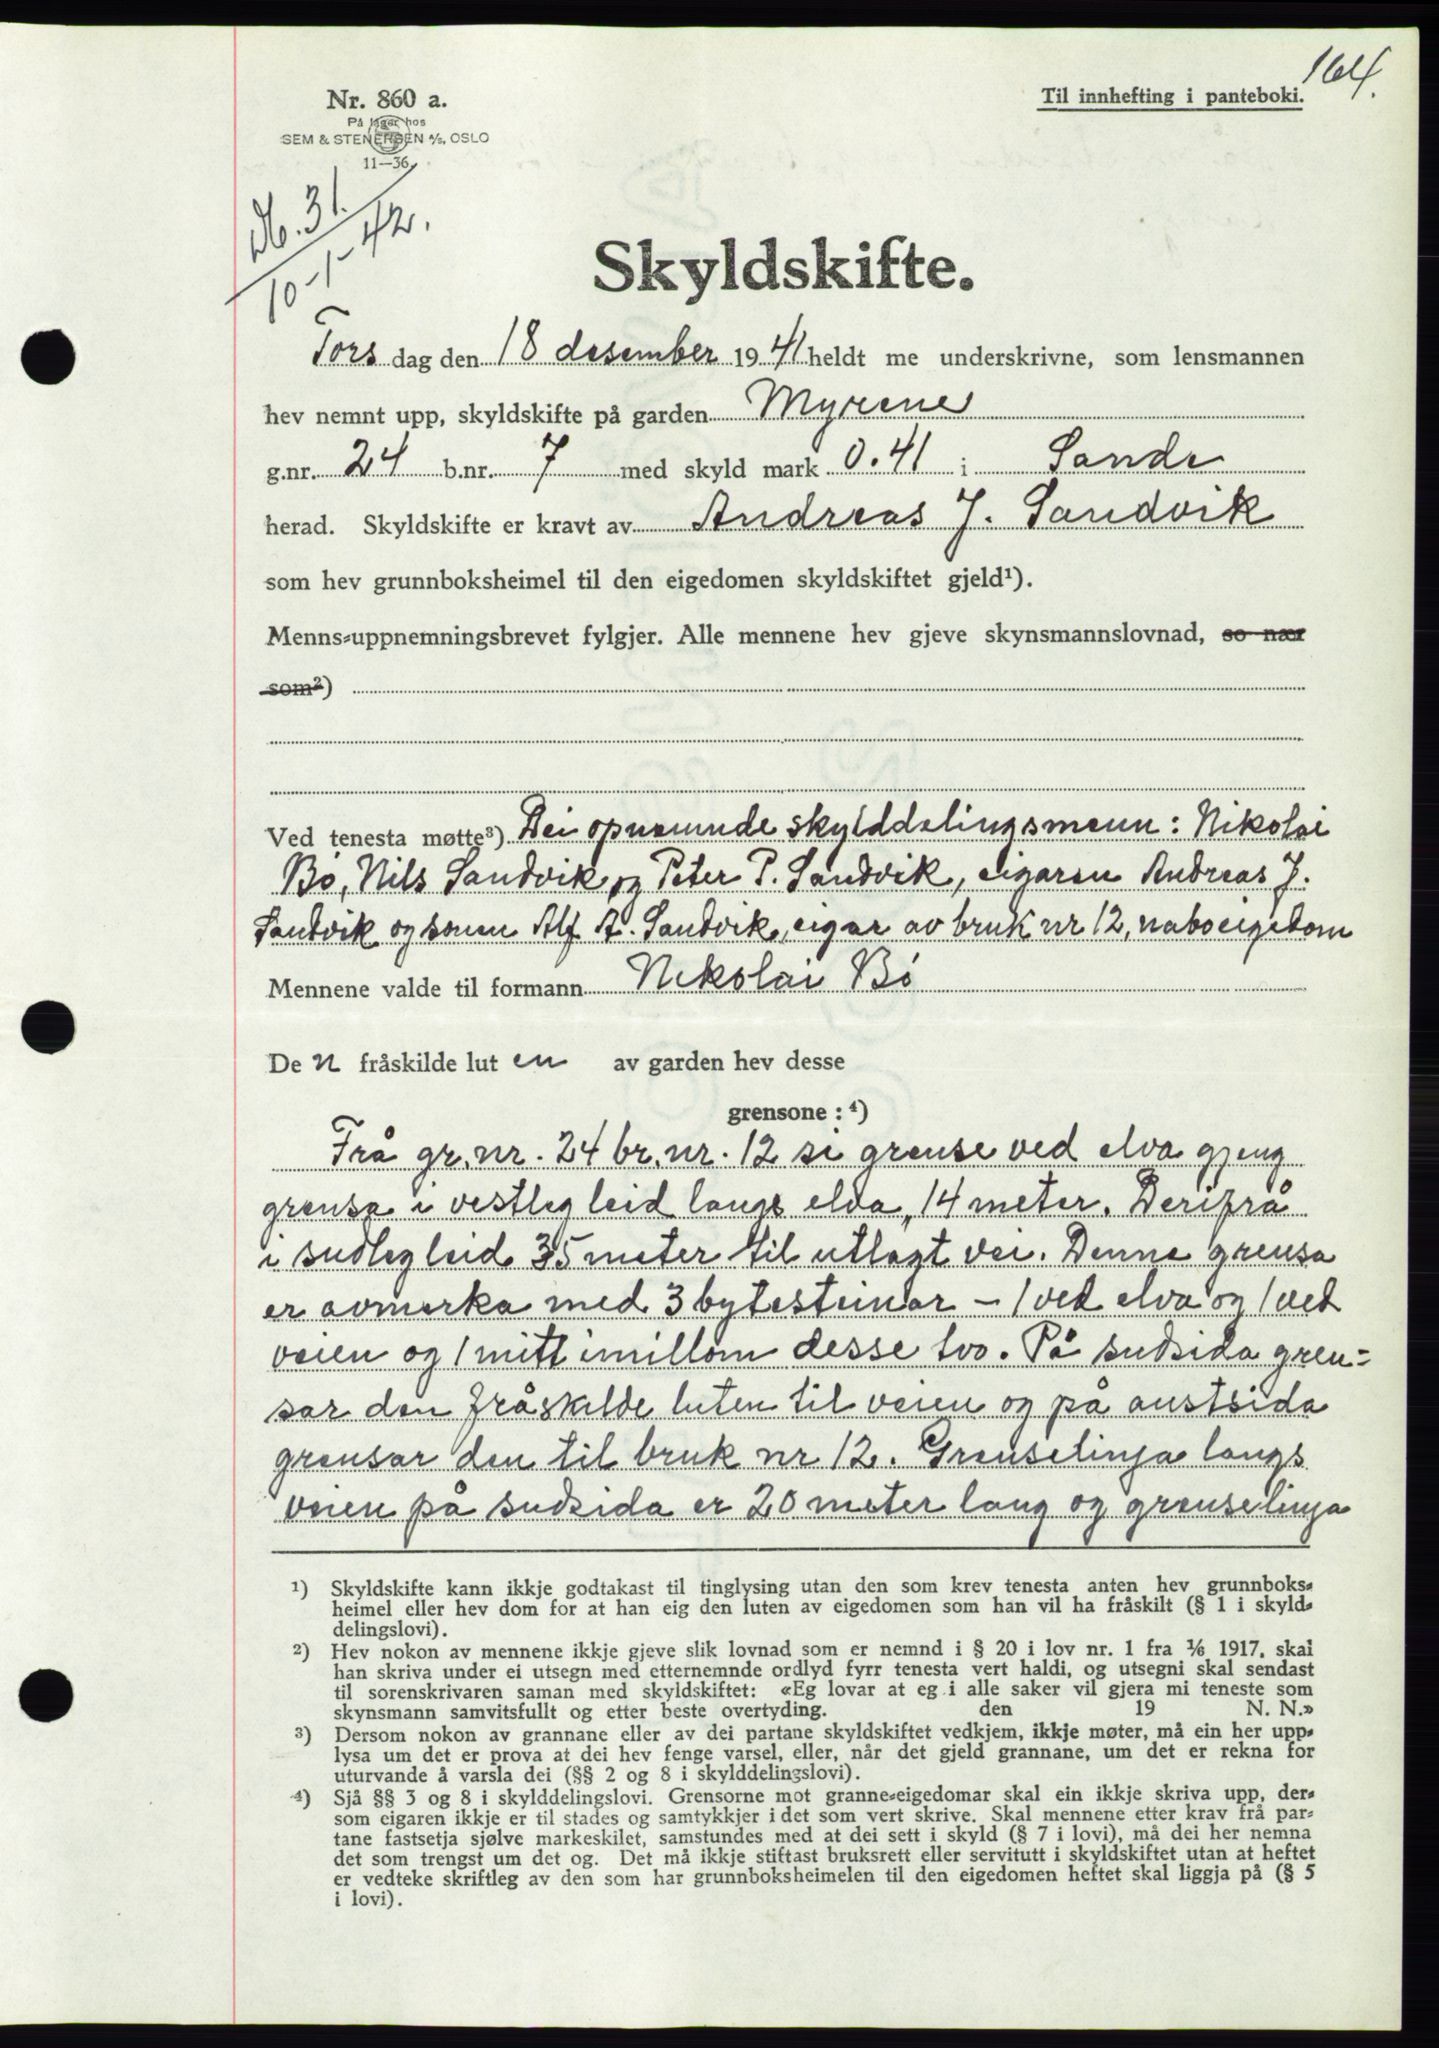 164.
Nr. 860 a.
Til innhefting i panteboki.
På lager hos
SEM & STENERSEN A/S, OSLO
11—36
Nb. 31.
10-1-42.
Skyldskifte.
Tors dag den 18 desember 1941 heldt me underskrivne, som lensmannen
hev nemnt upp, skyldskifte på garden Myrene
g.nr. 24 b.nr. 7 med skyld mark 0.41 i Sande
herad. Skyldskifte er kravt av Andreas J. Sandvik
som hev grunnboksheimel til den eigedomen skyldskiftet gjeld¹).
Menns-uppnemningsbrevet fylgjer. Alle mennene hev gjeve skynsmannslovnad, so nær
som²)
Ved tenesta møtte³) Dei opnemnde skylddelingsmenn: Nikolai
Bö, Nils Sandvik og Peter P. Sandvik, eigaren Andreas J.
Sandvik og sonen Alf A. Sandvik, eigar av bruk nr 12, naboeigedom
Mennene valde til formann Nikolai Bö
De n fråskilde lut en av garden hev desse
grensone : ⁴)
Frå gr. nr. 24 br. nr. 12 si grense ved elva gjeng
grensa i vestleg leid langs elva, 14 meter. Derifrå
i sudleg leid 35 meter til utlagt vei. Denne grensa
er avmerka med 3 bytesteinar – 1 ved elva og 1 ved
veien og 1 mitt imillom desse tvo. På sudsida gren=
sar den fråskilde luten til veien og på austsida
grensar den til bruk nr 12. Grenselinja langs
veien på sudsida er 20 meter lang og grenselinja
¹) Skyldskifte kann ikkje godtakast til tinglysing utan den som krev tenesta anten hev grunnboks-
heimel eller hev dom for at han eig den luten av eigedomen som han vil ha fråskilt (§ 1 i skyld-
delingslovi).
²) Hev nokon av mennene ikkje gjeve slik lovnad som er nemnd i § 20 i lov nr. 1 fra 1/6 1917, skal
han skriva under ei utsegn med etternemnde ordlyd fyrr tenesta vert haldi, og utsegni skal sendast
til sorenskrivaren saman med skyldskiftet: «Eg lovar at eg i alle saker vil gjera mi teneste som
skynsmann samvitsfullt og etter beste overtyding. den 19 N. N.»
³) Dersom nokon av grannane eller av dei partane skyldskiftet vedkjem, ikkje møter, må ein her upp-
lysa um det er prova at dei hev fenge varsel, eller, når det gjeld grannane, um det er rekna for
uturvande å varsla dei (§§ 2 og 8 i skylddelingslovi).
⁴) Sjå §§ 3 og 8 i skylddelingslovi. Grensorne mot granne-eigedomar skal ein ikkje skriva upp, der-
som eigaren ikkje er til stades og samtykkjer i det som vert skrive. Skal mennene etter krav frå par-
tane fastsetja sjølve markeskilet, samstundes med at dei sett i skyld (§ 7 i lovi), må dei her nemna
det som trengst um det og. Det må ikkje stiftast bruksrett eller servitutt i skyldskiftet utan at heftet
er vedteke skriftleg av den som har grunnboksheimelen til den eigedomen heftet skal liggja på (§ 5
i lovi).